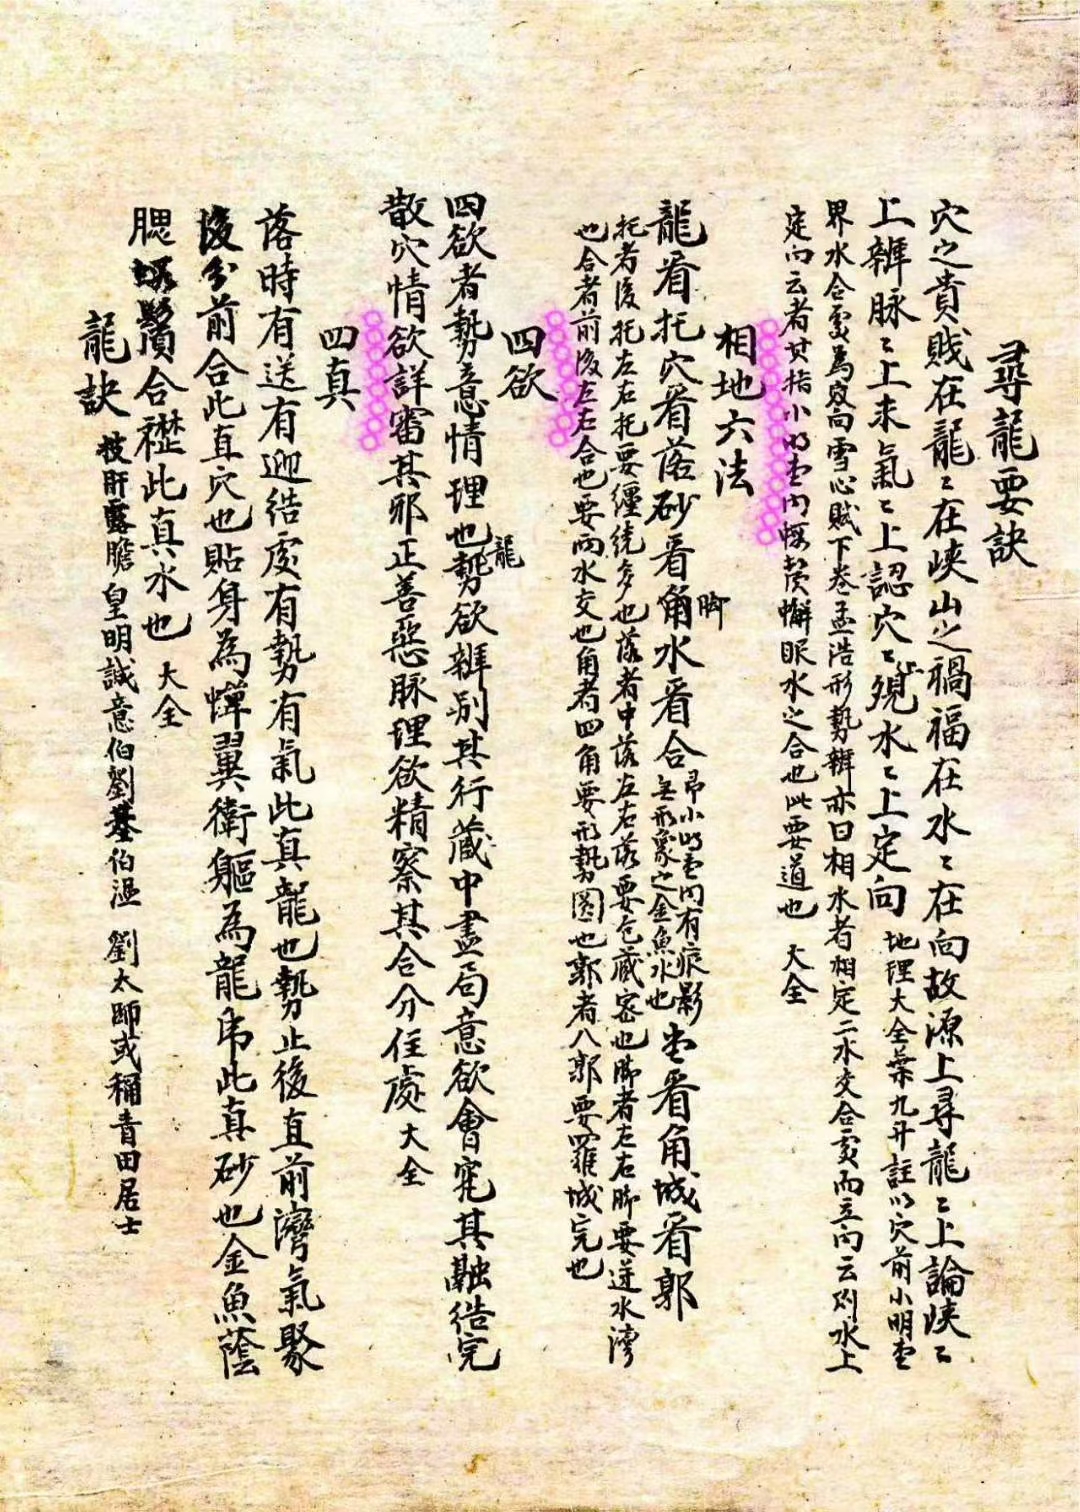 尋龍要訣
穴之貴賤在龍〻在峽山之禍福在水〻在向故源上尋龍〻上論峽〻
上辨脉〻上求氣〻上認穴〻上視水〻上定向 地理大全葉九升註以穴前小明堂
界水合處為定向雪心賦下卷孟浩形勢辨亦曰相水者相定二水交合處而立向云則水上
定向云者其指小明堂內蝦鬚蠏眼水之合也此要道也 大全
相地六法
龍看托穴看落砂看角脚水看合 吊小明堂內有痕影無形象之金魚水也 堂看角城看郭
托者後托左右托要纏繞多也落者中落左右落要包藏密也脚者左右脚要逆水灣
也合者前後左右合也要兩水交也角者四角要形勢圓也郭者八郭要羅城完也
四欲
四欲者勢意情理也龍勢欲辨別其行藏中盡局意欲會究其融結完
散穴情欲詳審其邪正善惡脈理欲精察其合分住處 大全
四真
落時有送有迎結處有勢有氣此真龍也勢止後直前灣氣聚
後分前合此直穴也貼身為蟬翼衛軀為龍虎此真砂也金魚蔭
腮蝦鬚合襟此真水也 大全
龍訣 披肝露膽 皇明誠意伯劉基伯溫 劉太師或稱青田居士